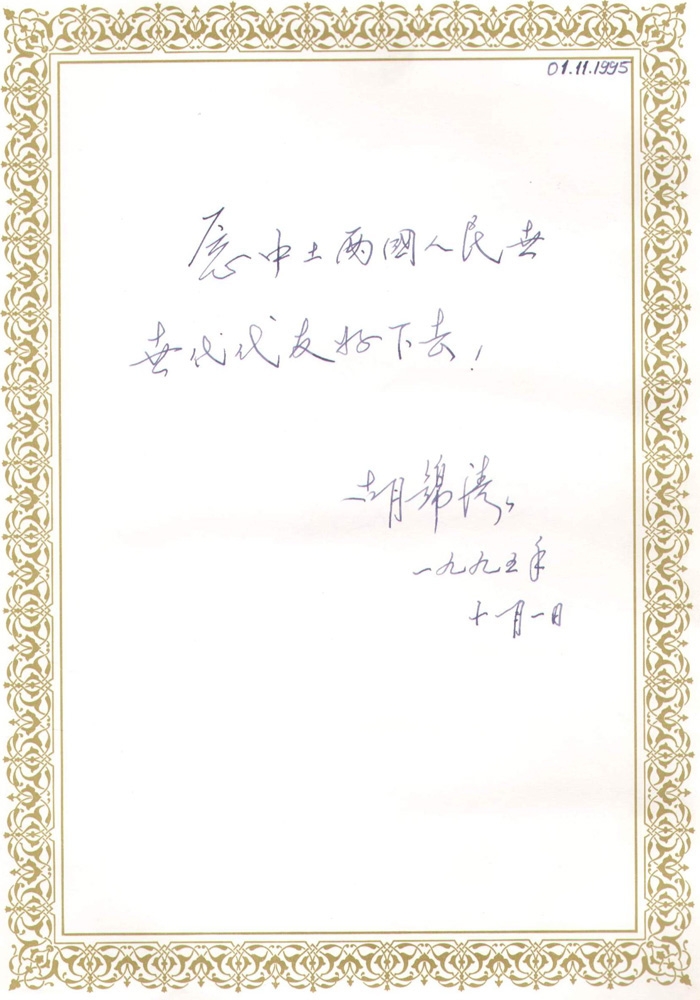 01.11.1995
愿中土两國人民世
世代代友好下去!
胡錦涛
一九九五年
十一月一日